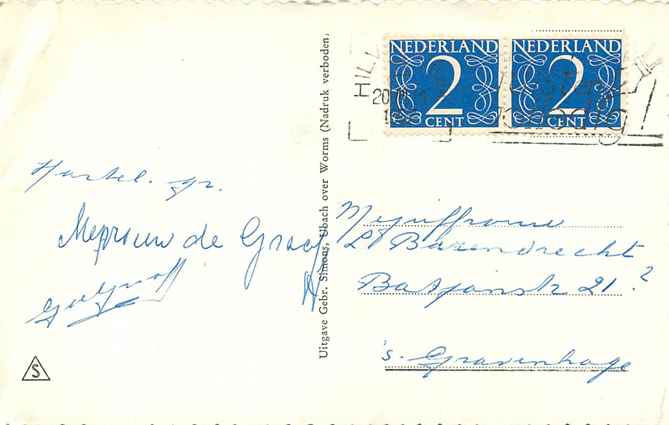 NEDERLAND NEDERLAND
2 2
CENT CENT
HIL
20
1
Hartel. gr.
Mevrouw de Graaf
Uitgave Gebr. Simons, Ubach over Worms (Nadruk verboden.
Mejuffrouw
Barendrecht
21
's-Gravenhage
S